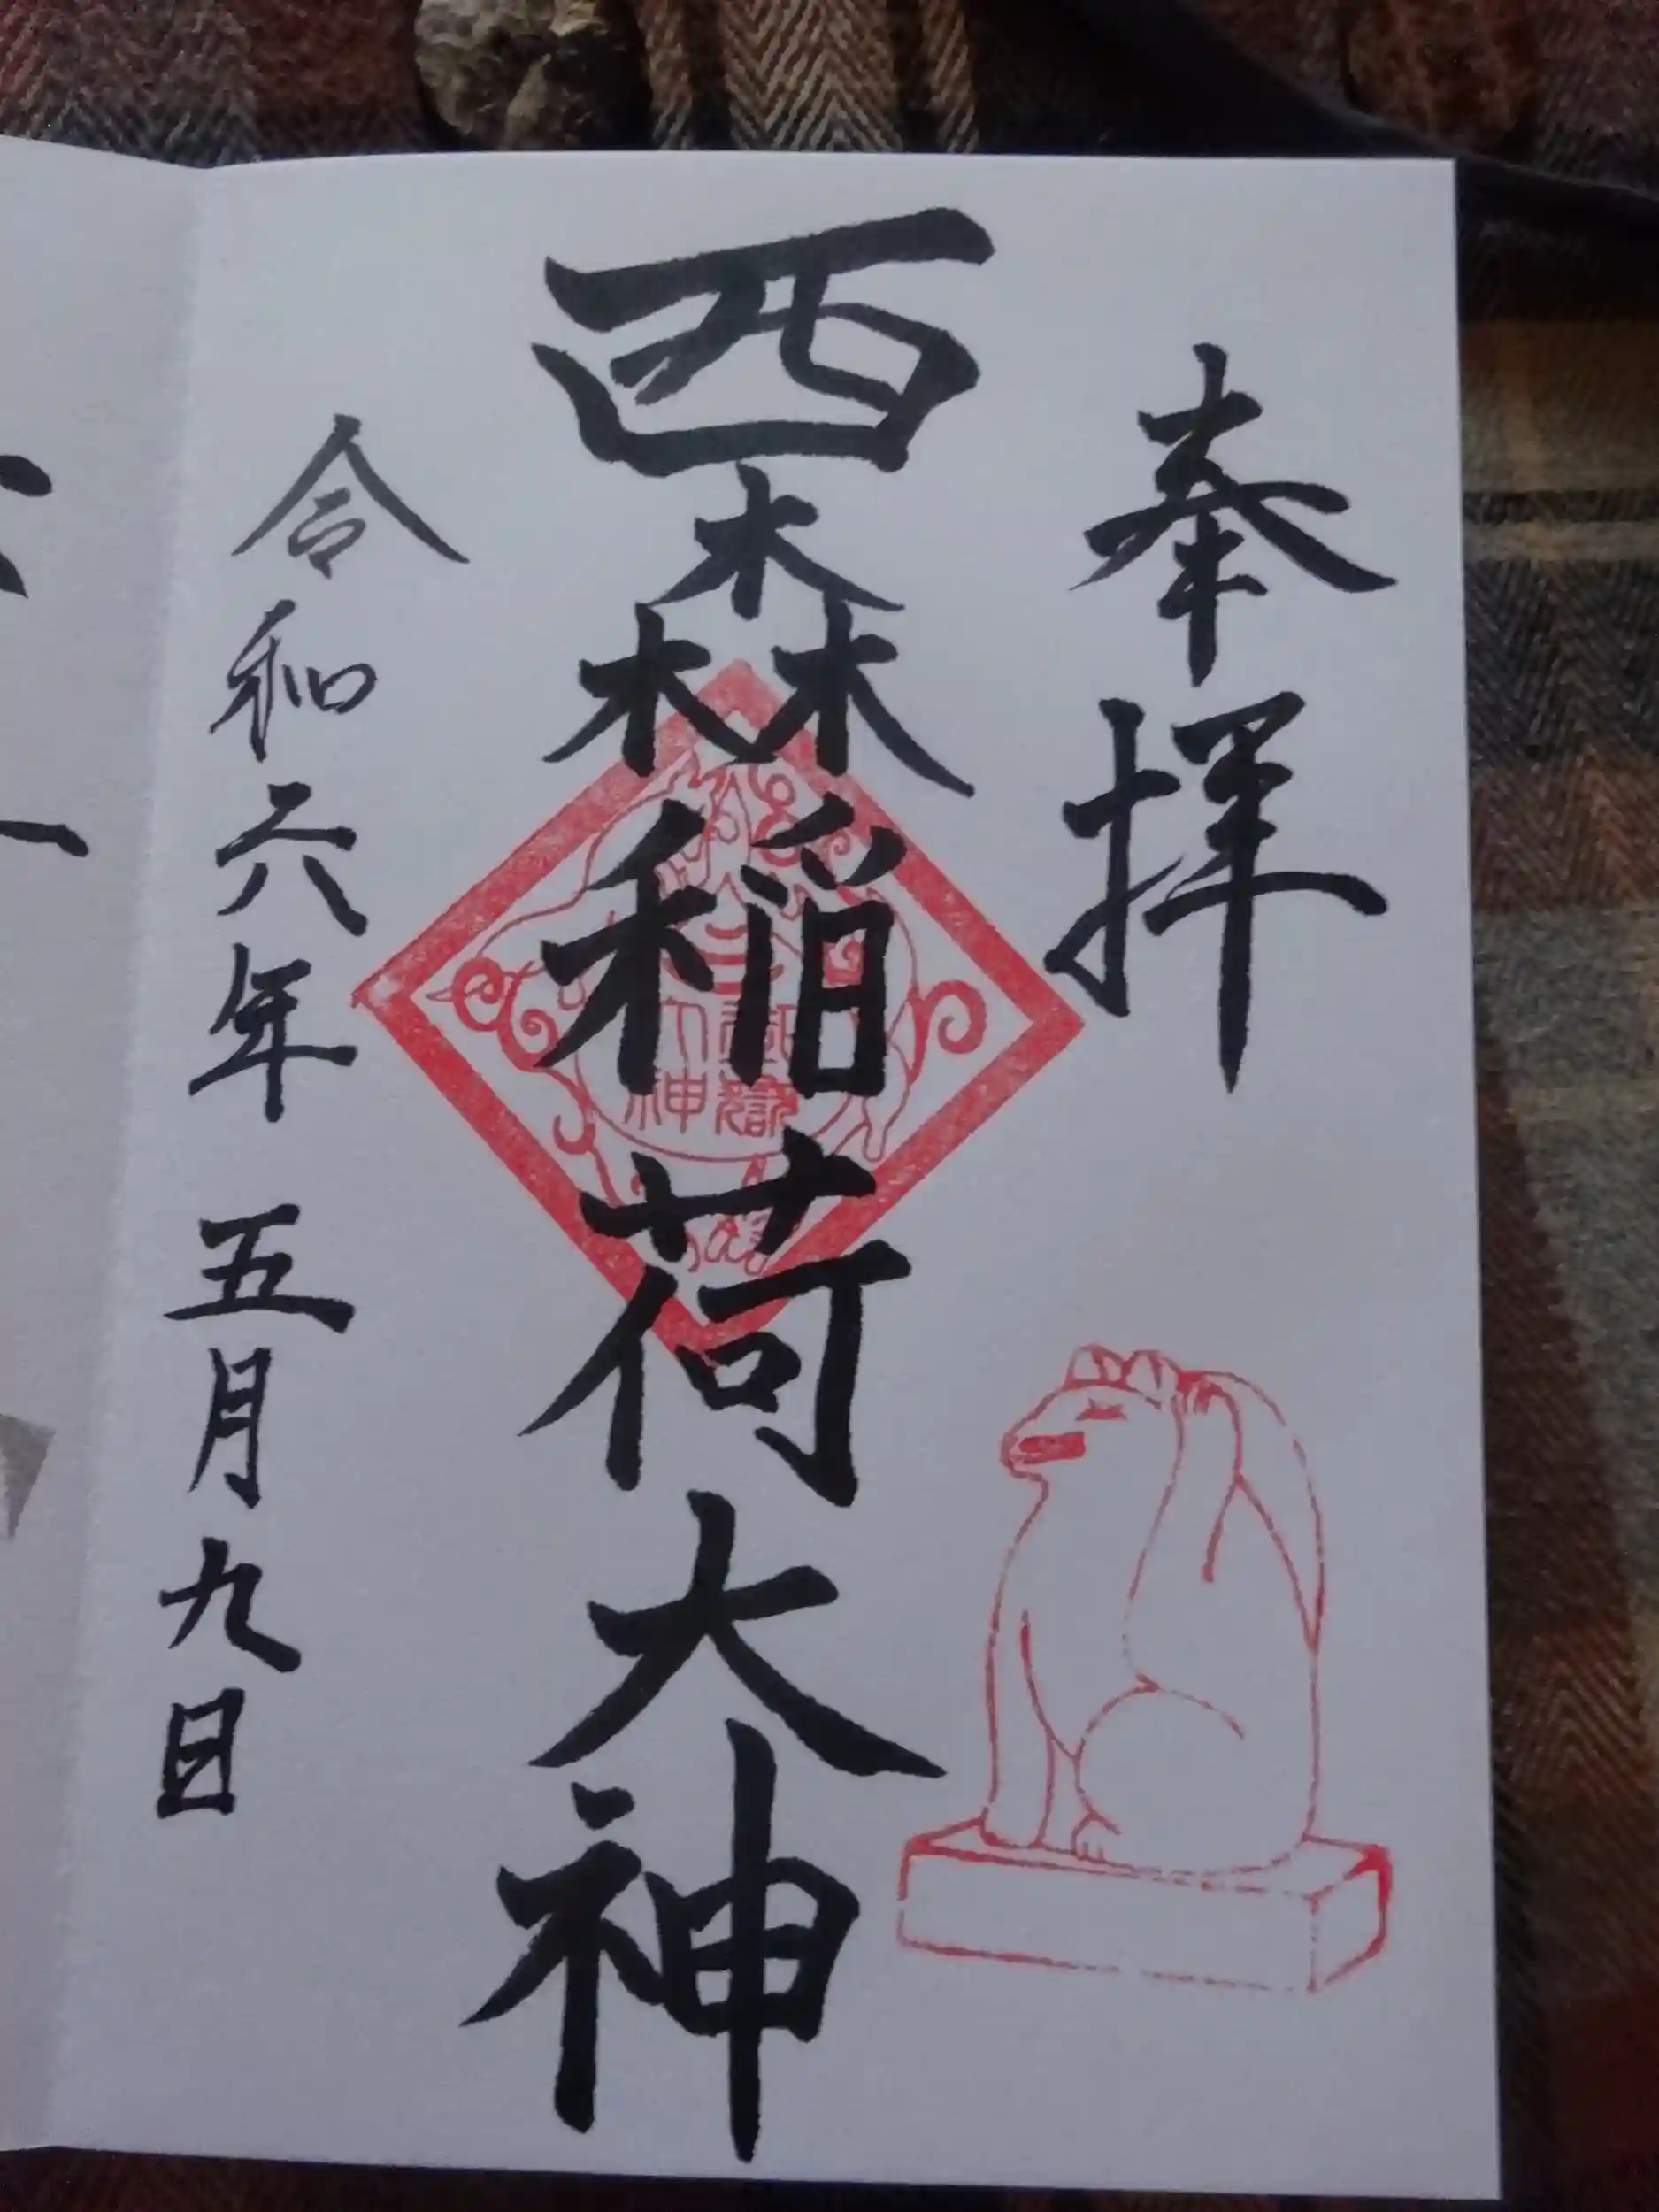 奉拝
西森稲荷大神
令和六年 五月九日